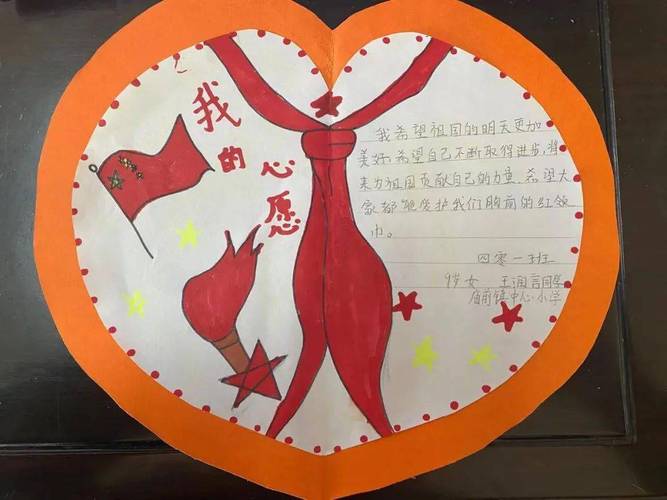 我的心愿
我希望祖国的明天更加
美好,希望自己不断取得进步,将
来为祖国贡献自己的力量。希望大
家都能爱护我们胸前的红领
巾。
四零一班
9岁 女 王润言同学
庙前镇中心小学